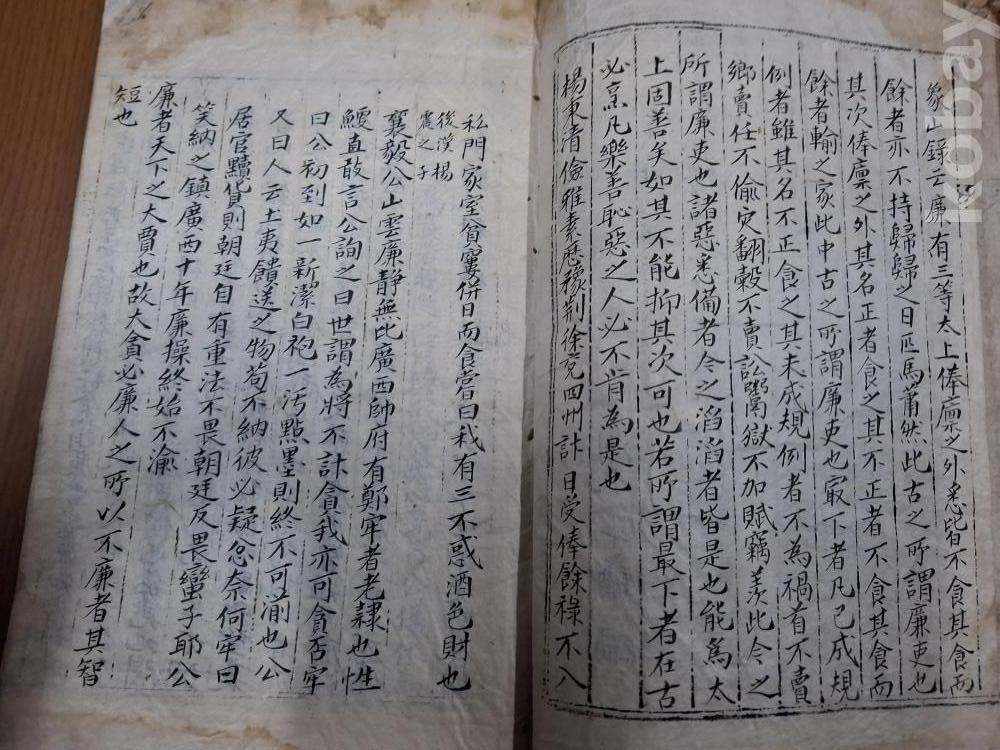 象山錄云廉有三等太上俸廩之外悉皆不食其食而
餘者亦不持歸歸之日匹馬蕭然此古之所謂廉吏也
其次俸廩之外其名正者食之其不正者不食其食而
餘者輸之家此中古之所謂廉吏也最下者凡已成規
例者雖其名不正食之其未成規例者不為禍首不賣
鄉賣任不偷灾翻穀不賣訟鬻獄不加賦竊羨此今之
所謂廉吏也諸惡悉備者今之滔滔者皆是也能為太
上固善矣如其不能抑其次可也若所謂最下者在古
必烹凡樂善恥惡之人必不肯為是也
楊秉淸儉雅素歷豫荊徐兗四州計日受俸餘祿不入
私門家室貧窶併日而食嘗曰我有三不惑酒色財也
後漢楊
震之子
襄毅公山雲廉靜無比廣西帥府有鄭牢者老隷也性
鯁直敢言公詢之曰世謂為將不計貪我亦可貪否牢
曰公初到如一新潔白袍一汚點墨則終不可湔也公
又曰人云土夷饋送之物苟不納彼必疑忿奈何牢曰
居官黷貨則朝廷自有重法不畏朝廷反畏蠻子耶公
笑納之鎮廣西十年廉操終始不渝
廉者天下之大賈也故大貪必廉人之所以不廉者其智
短也
kobay
kobay